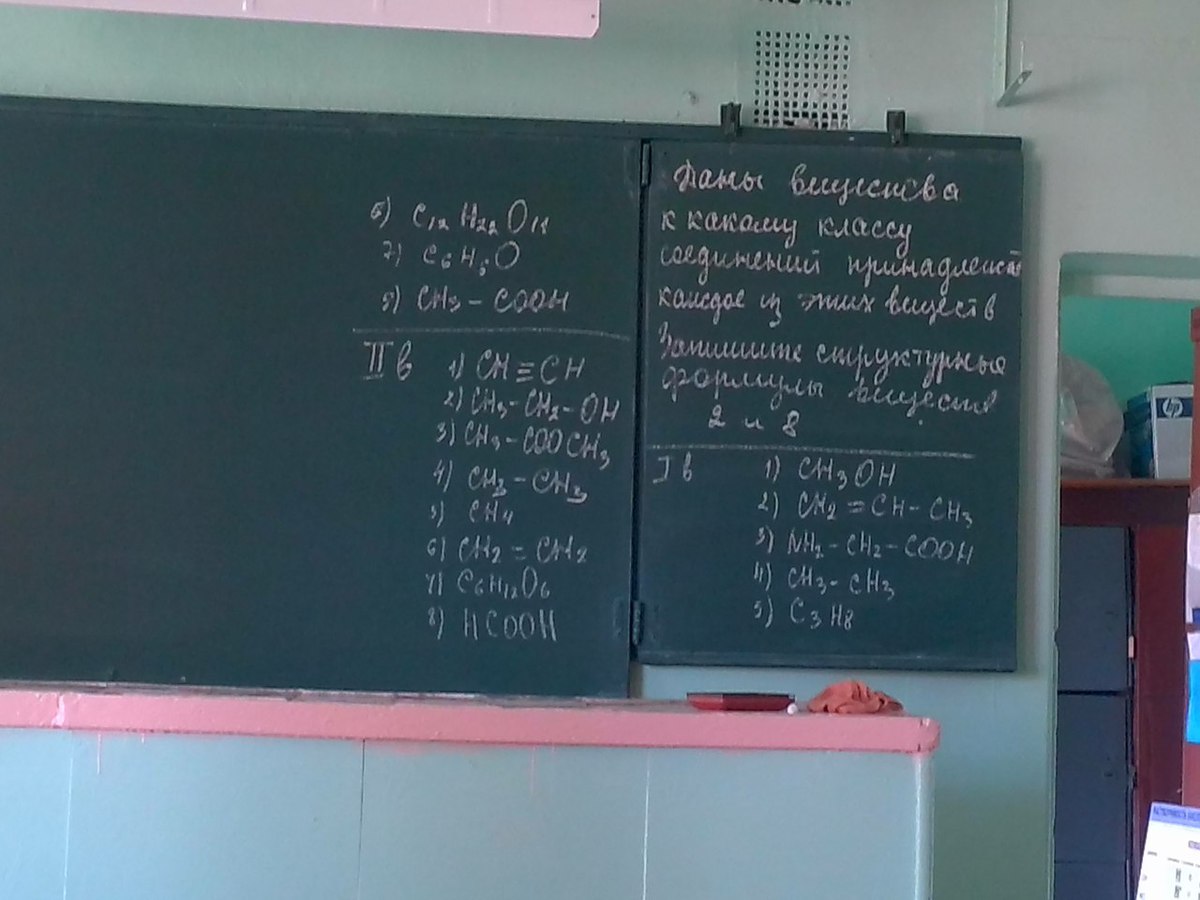 Даны вещества
к какому классу
соединений принадлежит
каждое из этих веществ
Запишите структурные
формулы веществ
2 и 8
I в
1) CH₃OH
2) CH₂ = CH - CH₃
3) NH₂ - CH₂ - COOH
4) CH₃ - CH₃
5) C₃H₈
6) C₁₂H₂₂O₁₁
7) C₆H₅O
CH₃ - COOH
II в
1) CH ≡ CH
2) CH₃ - CH₂ - OH
3) CH₃ - COOCH₃
4) CH₃ - CH₃
CH₄
6) CH₂ = CH₂
7) C₆H₁₂O₆
8) HCOOH
hp